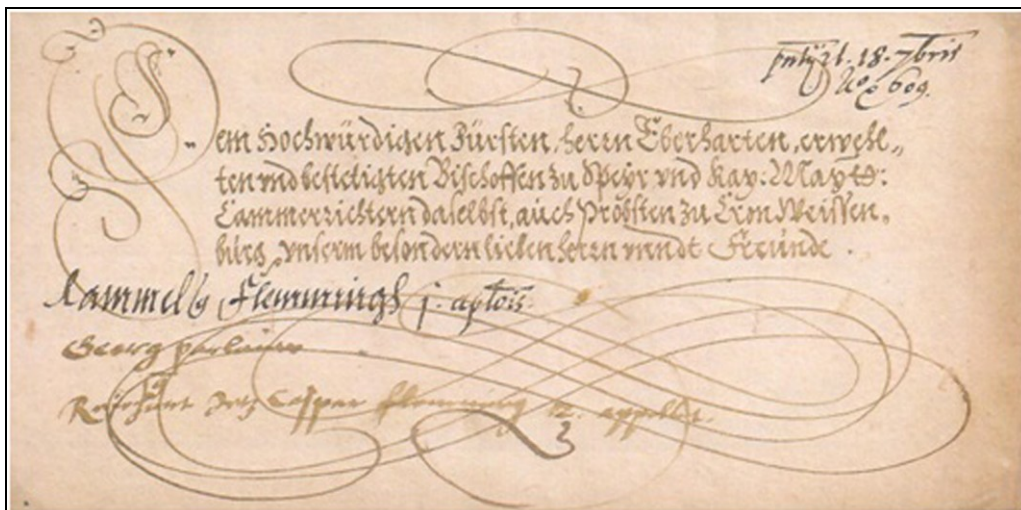 18. 7bris
Ao 609.
Dem Hochwürdigen Fürsten, Herrn Eberharten, erwehl„
ten vnd bestetigten Bischoffen zu Speyr vnd Kay: Mayts:
Cammerrichtern daselbst, auch Pröbsten zu Cron Weissen„
burg, vnserm besondern lieben Herrn vnndt Freunde.
Flemmingh j: aptois
Georg
Caspar Flemming appellat.